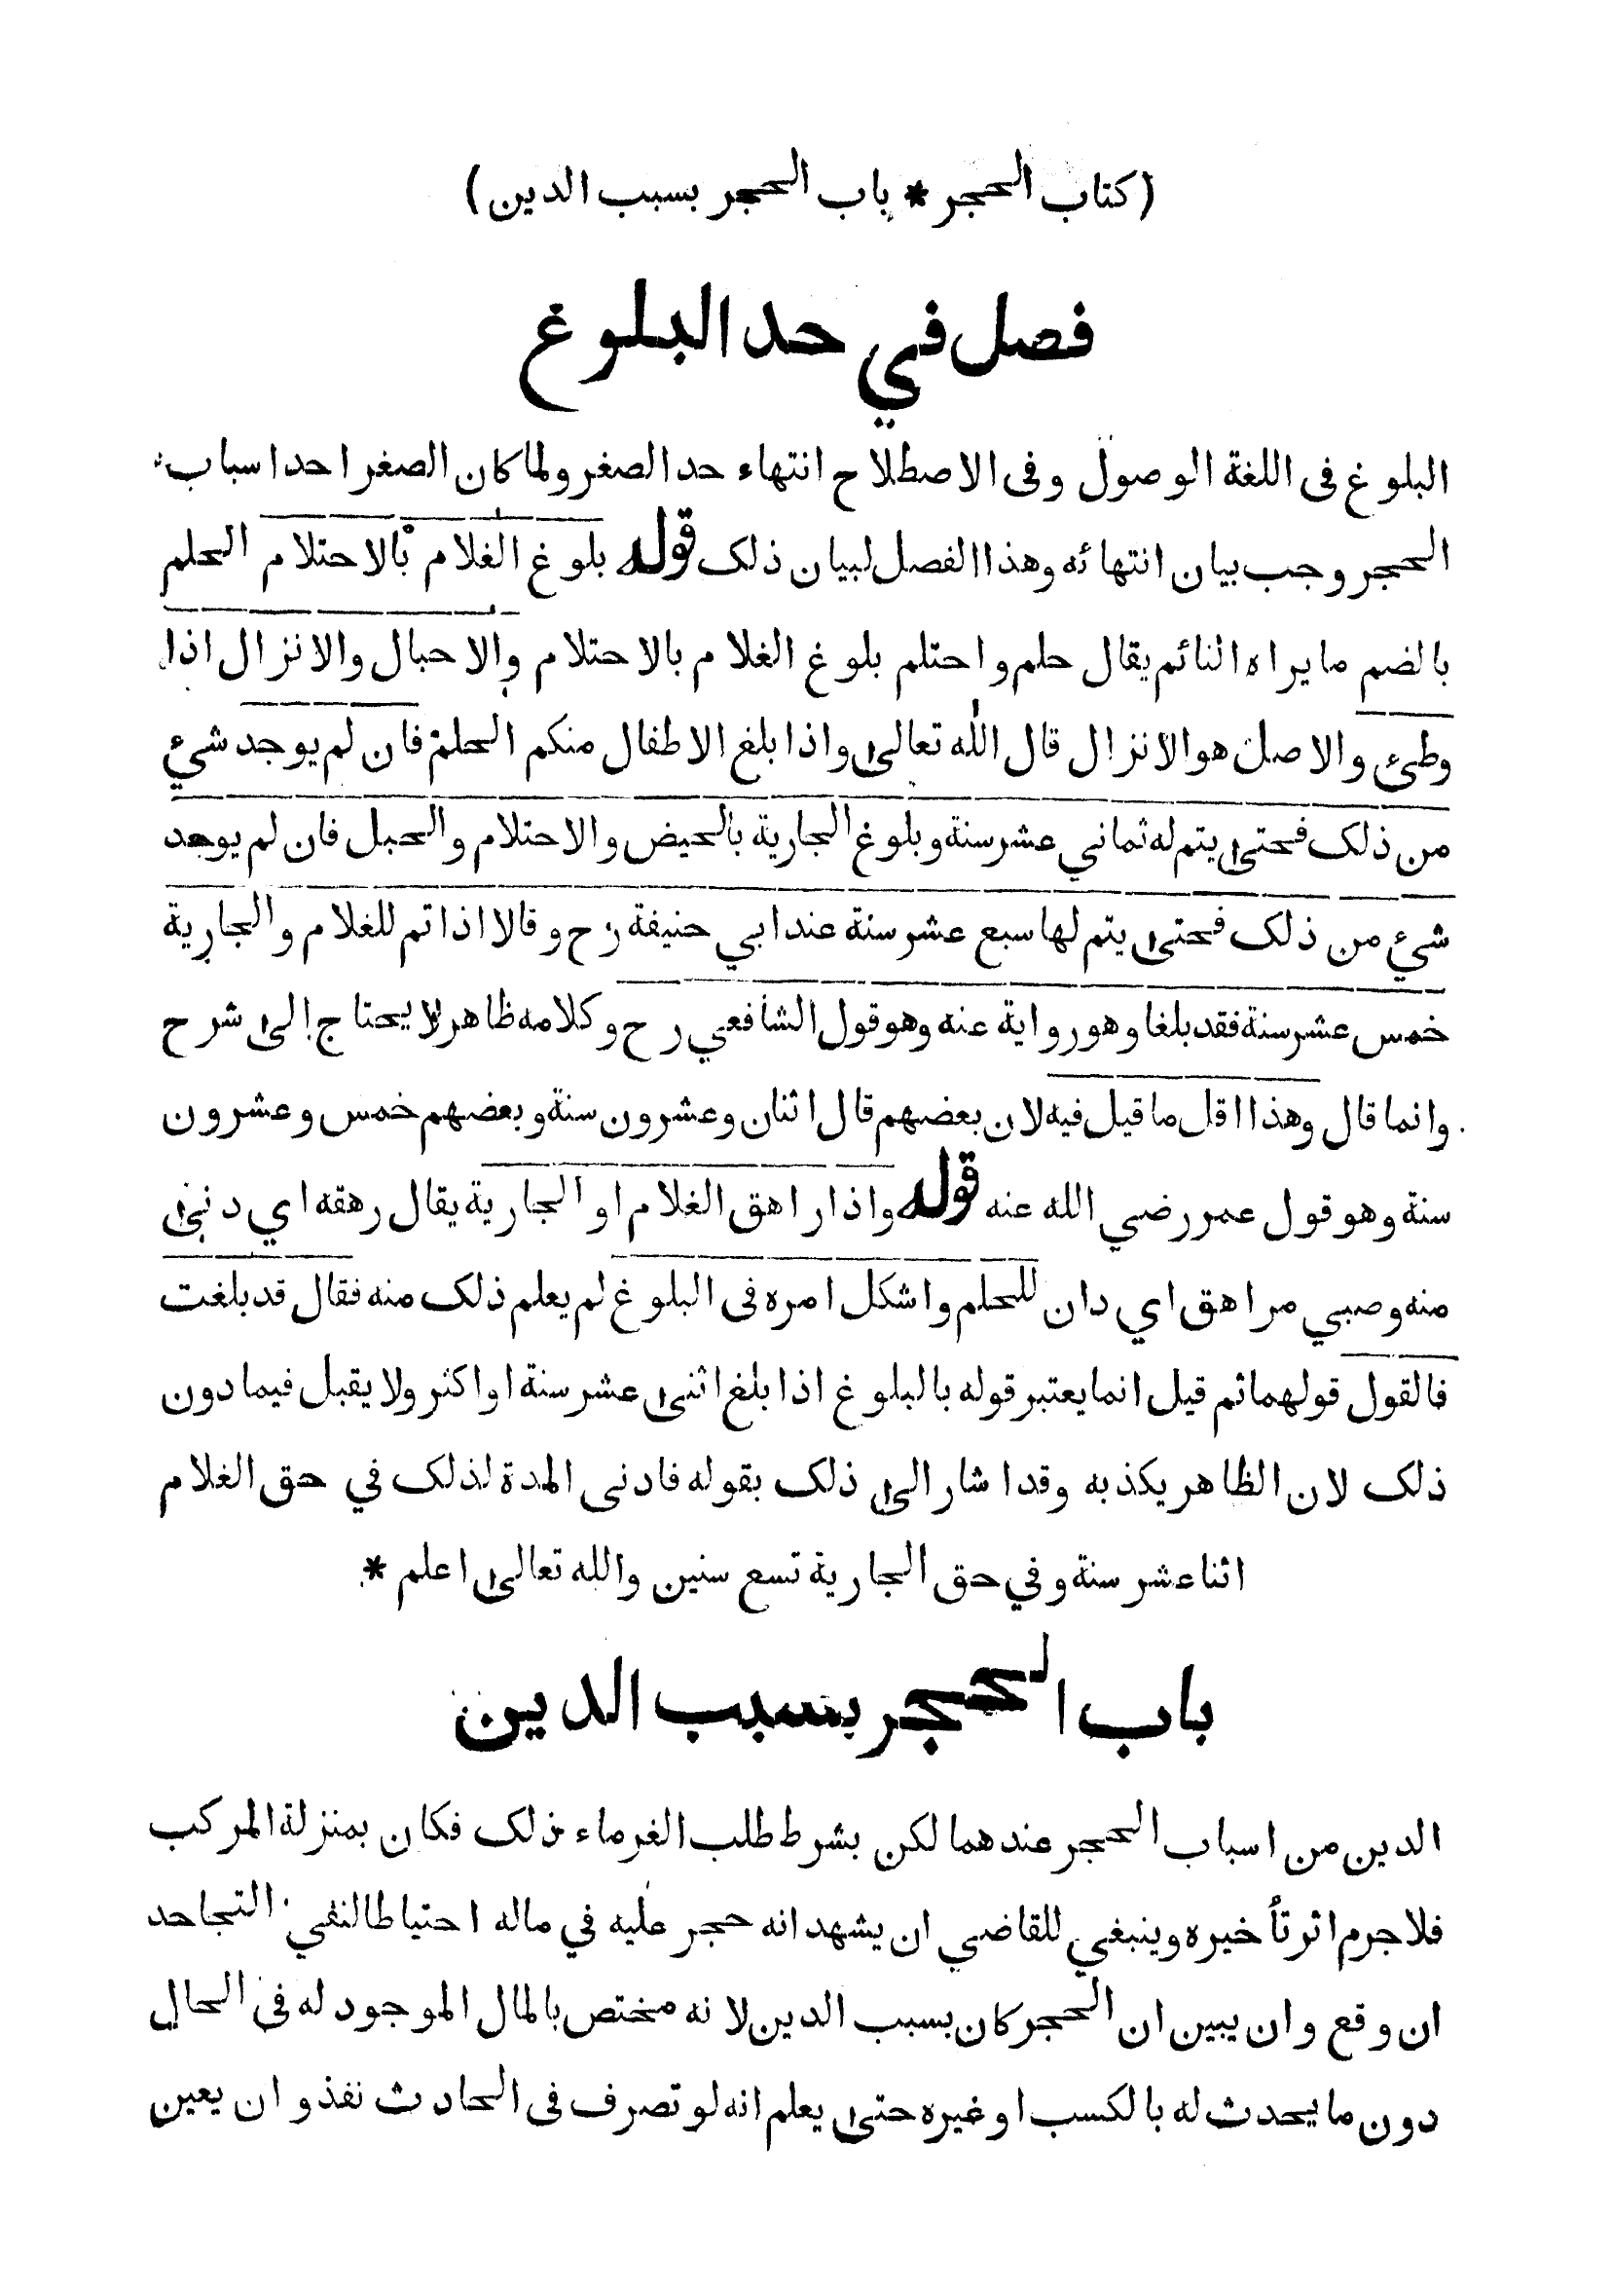 (كتاب الحجر * باب الحجر بسبب الدين)
فصل في حد البلوغ
البلوغ فى اللغة الوصول وفى الاصطلاح انتهاء حد الصغر ولما كان الصغر احد اسباب
الحجر وجب بيان انتهائه وهذا الفصل لبيان ذلك قوله بلوغ الغلام بالاحتلام الحلم
بالضم ما يراه النائم يقال حلم واحتلم بلوغ الغلام بالاحتلام والاحبال والانزال اذا
وطئ والاصل هو الانزال قال الله تعالى واذا بلغ الاطفال منكم الحلم فان لم يوجد شيء
من ذلك فحتى يتم له ثماني عشر سنة وبلوغ الجارية بالحيض والاحتلام والحبل فان لم يوجد
شيء من ذلك فحتى يتم لها سبع عشر سنة عند ابي حنيفة رح وقالا اذا تم للغلام والجارية
خمس عشر سنة فقد بلغا وهو رواية عنه وهو قول الشافعي رح وكلامه ظاهر لا يحتاج إلى شرح
وانما قال وهذا اقل ما قيل فيه لان بعضهم قال اثنان وعشرون سنة وبعضهم خمس وعشرون
سنة وهو قول عمر رضي الله عنه قوله واذا راهق الغلام او الجارية يقال رهقه اي دنى
منه وصبي مراهق اي دان للحلم واشكل امره فى البلوغ لم يعلم ذلك منه فقال قد بلغت
فالقول قولهما ثم قيل انما يعتبر قوله بالبلوغ اذا بلغ اثنى عشر سنة او اكثر ولا يقبل فيما دون
ذلك لان الظاهر يكذبه وقد اشار الى ذلك بقوله فادنى المدة لذلك في حق الغلام
اثنا عشر سنة وفي حق الجارية تسع سنين والله تعالى اعلم *
باب الحجر بسبب الدين
الدين من اسباب الحجر عندهما لكن بشرط طلب الغرماء ذلك فكان بمنزلة المركب
فلا جرم اثر تأخيره وينبغي للقاضي ان يشهد انه حجر عليه في ماله احتياطا لنفي التجاحد
ان وقع وان يبين ان الحجر كان بسبب الدين لانه مختص بالمال الموجود له فى الحال
دون ما يحدث له بالكسب او غيره حتى يعلم انه لو تصرف فى الحادث نفذ وان يعين